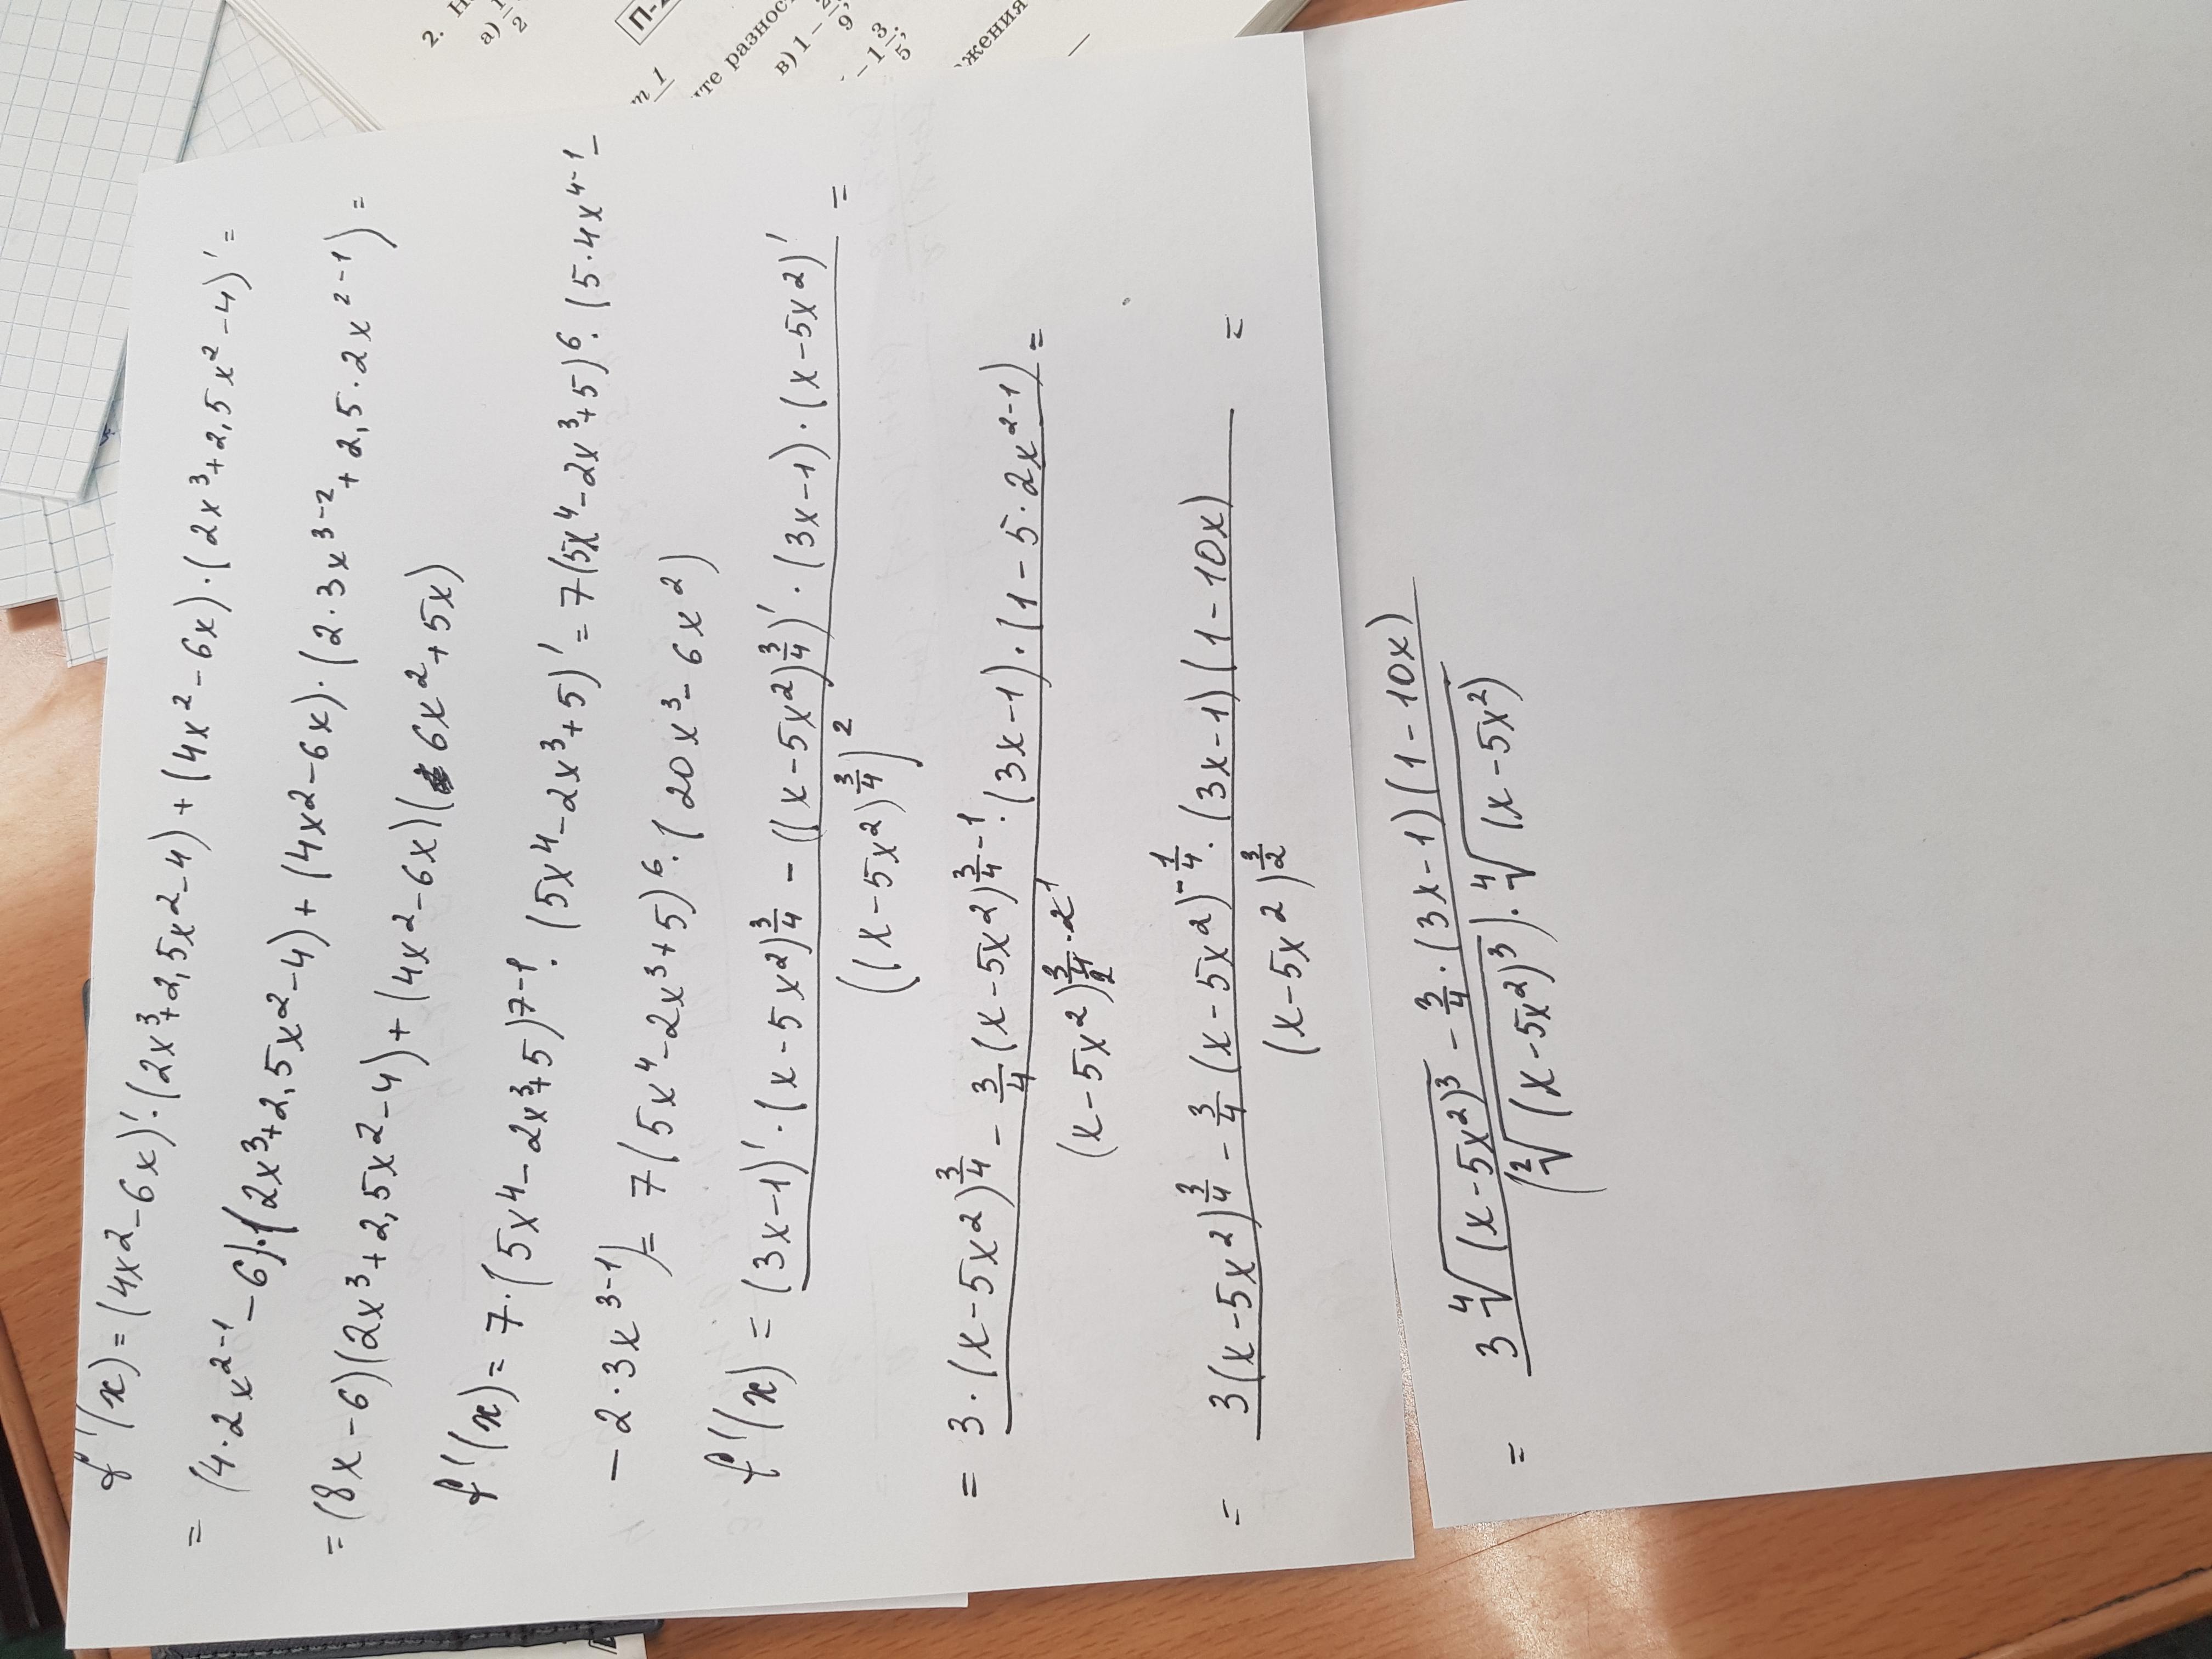 f'(x) = (4x2 - 6x)' · (2x³ + 2,5x2 - 4) + (4x² - 6x) · (2x³ + 2,5x² - 4)' =
= (4·2x²⁻¹ - 6)·(2x³ + 2,5x2 - 4) + (4x2 - 6x) · (2·3x³⁻² + 2,5·2x²⁻¹) =
= (8x - 6)(2x³ + 2,5x2 - 4) + (4x² - 6x)(6x² + 5x)
f'(x) = 7·(5x⁴ - 2x³ + 5)⁷⁻¹ · (5x⁴ - 2x³ + 5)' = 7(5x⁴ - 2x³ + 5)⁶ · (5·4x⁴⁻¹ -
- 2·3x³⁻¹) = 7(5x⁴ - 2x³ + 5)⁶ · (20x³ - 6x²)
f'(x) = ((3x - 1)' · (x - 5x2)^(3/4) - ((x - 5x2)^(3/4))' · (3x - 1) · (x - 5x2)') / ((x - 5x2)^(3/4))² =
= (3·(x - 5x2)^(3/4) - 3/4(x - 5x2)^(3/4 - 1) · (3x - 1) · (1 - 5·2x²⁻¹)) / (x - 5x2)^(3/4 · 2) =
= (3(x - 5x²)^(3/4) - 3/4(x - 5x²)^(-1/4) · (3x - 1)(1 - 10x)) / (x - 5x2)^(3/2) =
= (3 ⁴√(x - 5x²)³ - 3/4 · (3x - 1)(1 - 10x)) / (²√(x - 5x²)³) · ⁴√(x - 5x²)
2. Н
а) 1/2
П-
1
те разнос
в) 1 - 2/9;
- 1 3/5;
жения